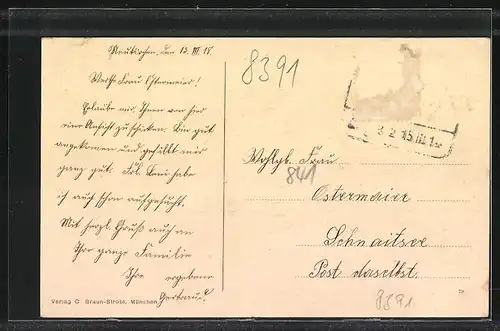 Neukirchen, den 13. III. 15.
Werthe Frau Ostermeier!
Erlaube mir, Ihnen von hier
eine Ansicht zu schicken. Bin gut
angekommen und gefällt mir
ganz gut. Frl. habe
ich auch schon aufgesucht.
Mit herzl. Gruß auch an
Ihre ganze Familie
Ihre ergebene
Gertraud.
Verlag C Braun-Strobl, München
8391
15.III.15
Wohlgb. Frau
841
Ostermeier
Schnaitsee
Post daselbst.
8391